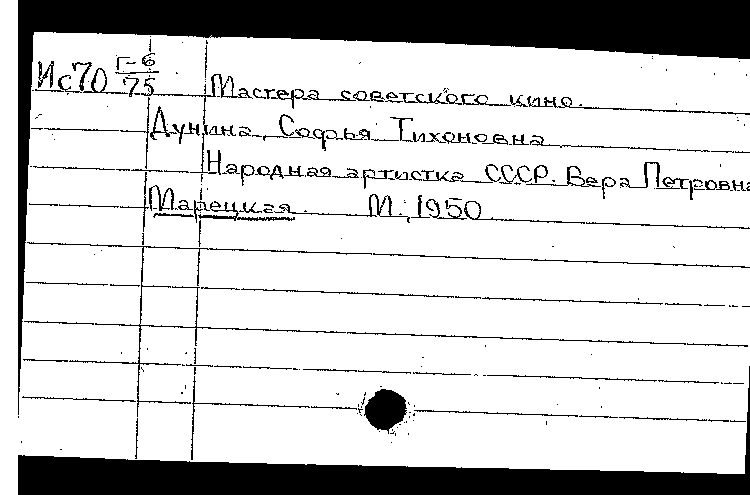 Ис70 Г-6/75 Мастера советского кино.
Дунина, Софья Тихоновна
Народная артистка СССР. Вера Петровна
Марецкая М., 1950